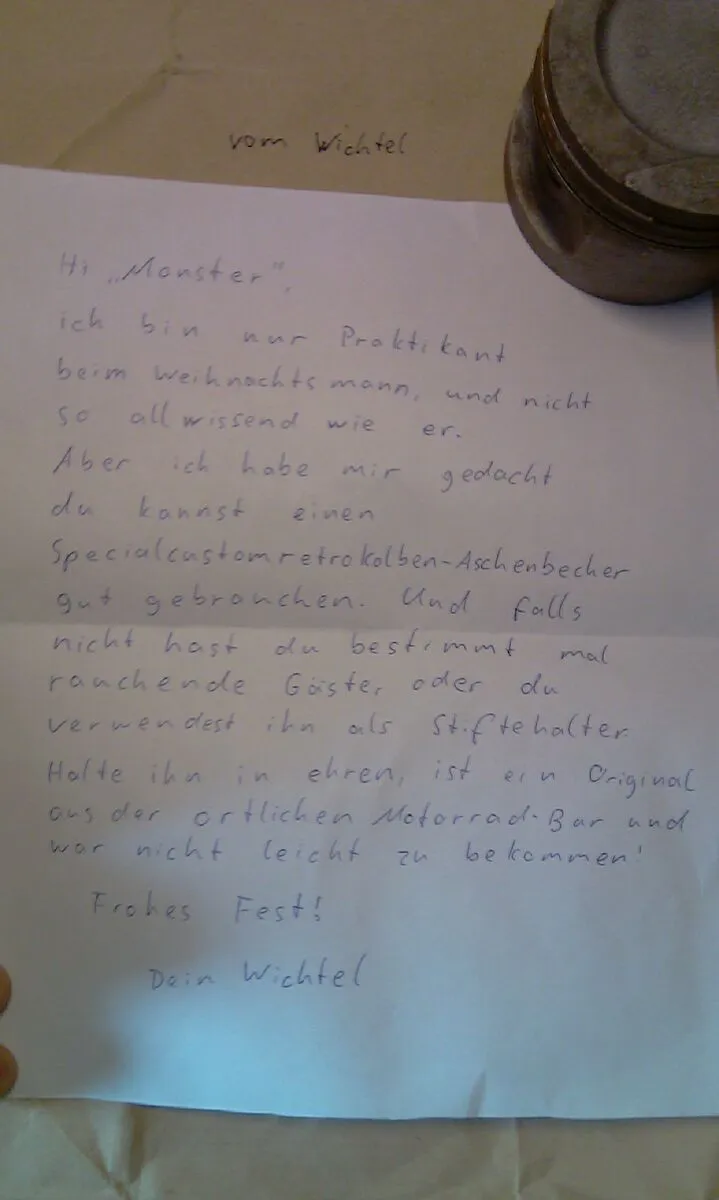 vom Wichtel
Hi „Monster",
ich bin nur Praktikant
beim Weihnachtsmann, und nicht
so allwissend wie er.
Aber ich habe mir gedacht
du kannst einen
Specialcustomretrokolben-Aschenbecher
gut gebrauchen. Und falls
nicht hast du bestimmt mal
rauchende Gäste, oder du
verwendest ihn als Stiftehalter.
Halte ihn in ehren, ist ein Original
aus der örtlichen Motorrad-Bar und
war nicht leicht zu bekommen!
Frohes Fest!
Dein Wichtel